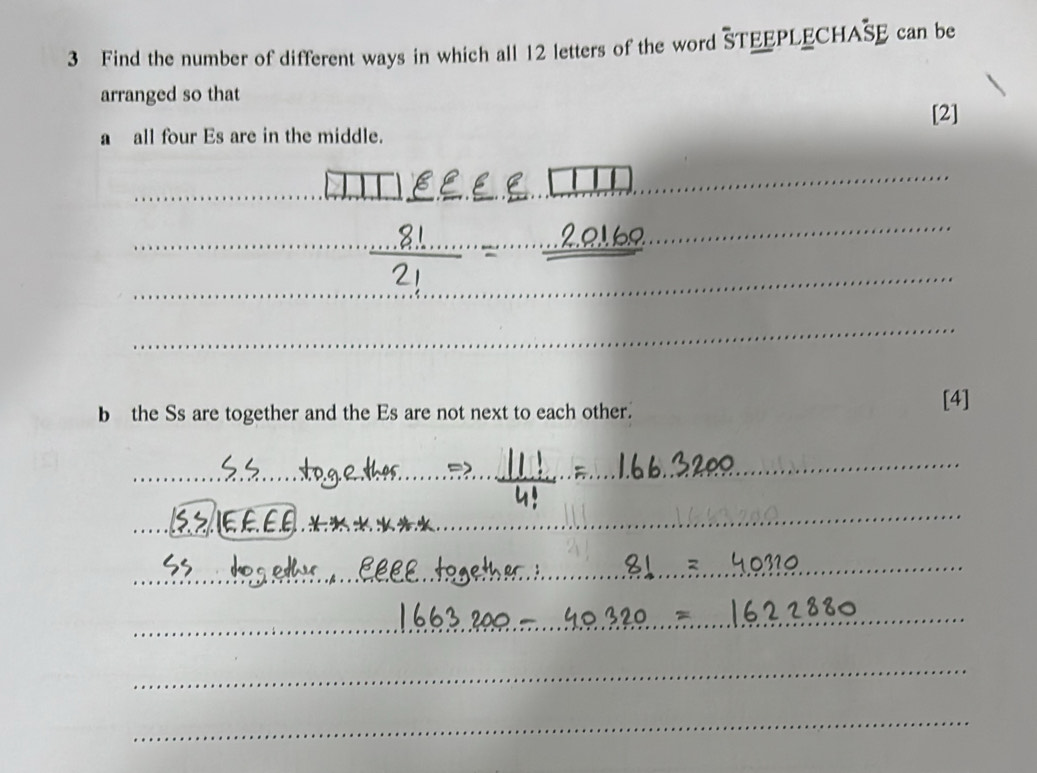 3 Find the number of different ways in which all 12 letters of the word STEEPLECHASE can be
arranged so that
[2]
a all four Es are in the middle.
E E E E
8! / 2! = 20160
b the Ss are together and the Es are not next to each other. [4]
SS together => 11! / 4! = 1663200
SS EEEE ******
SS together, EEEE together : 8! = 40320
1663200 - 40320 = 1622880